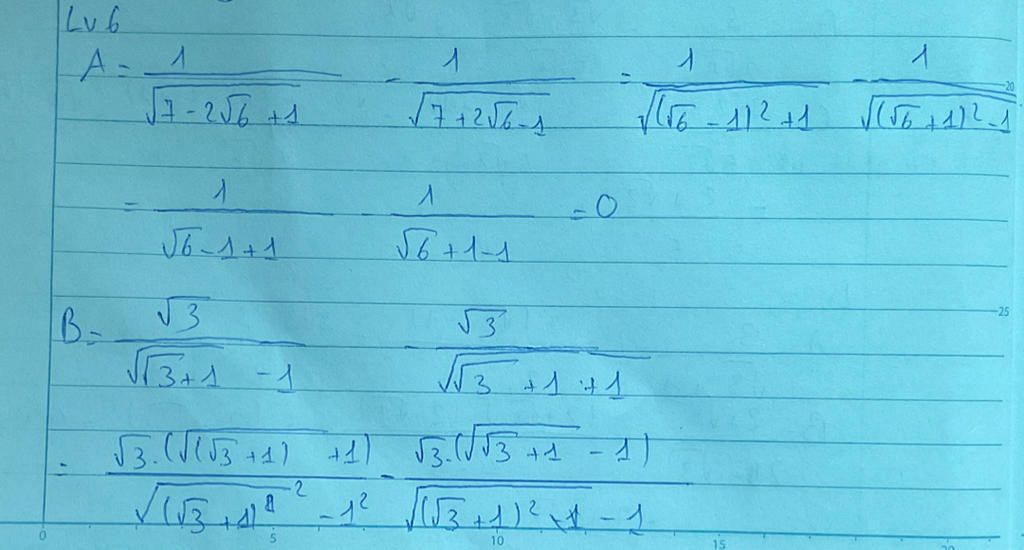 Lv 6
A = 1/√(7 - 2√6 + 1) - 1/√(7 + 2√6 - 1) = 1/(√((√6 - 1)²) + 1) - 1/√((√6 + 1)² - 1)
= 1/(√6 - 1 + 1) - 1/(√6 + 1 - 1) = 0
B = √3/(√(√3 + 1) - 1) - √3/(√(√3 + 1) + 1)
= √3.(√((√3 + 1)) + 1)/(√((√3 + 1))² - 1²) - √3.(√(√3 + 1) - 1)/(√((√3 + 1)²) - 1)
20
25
0 5 10 15 20